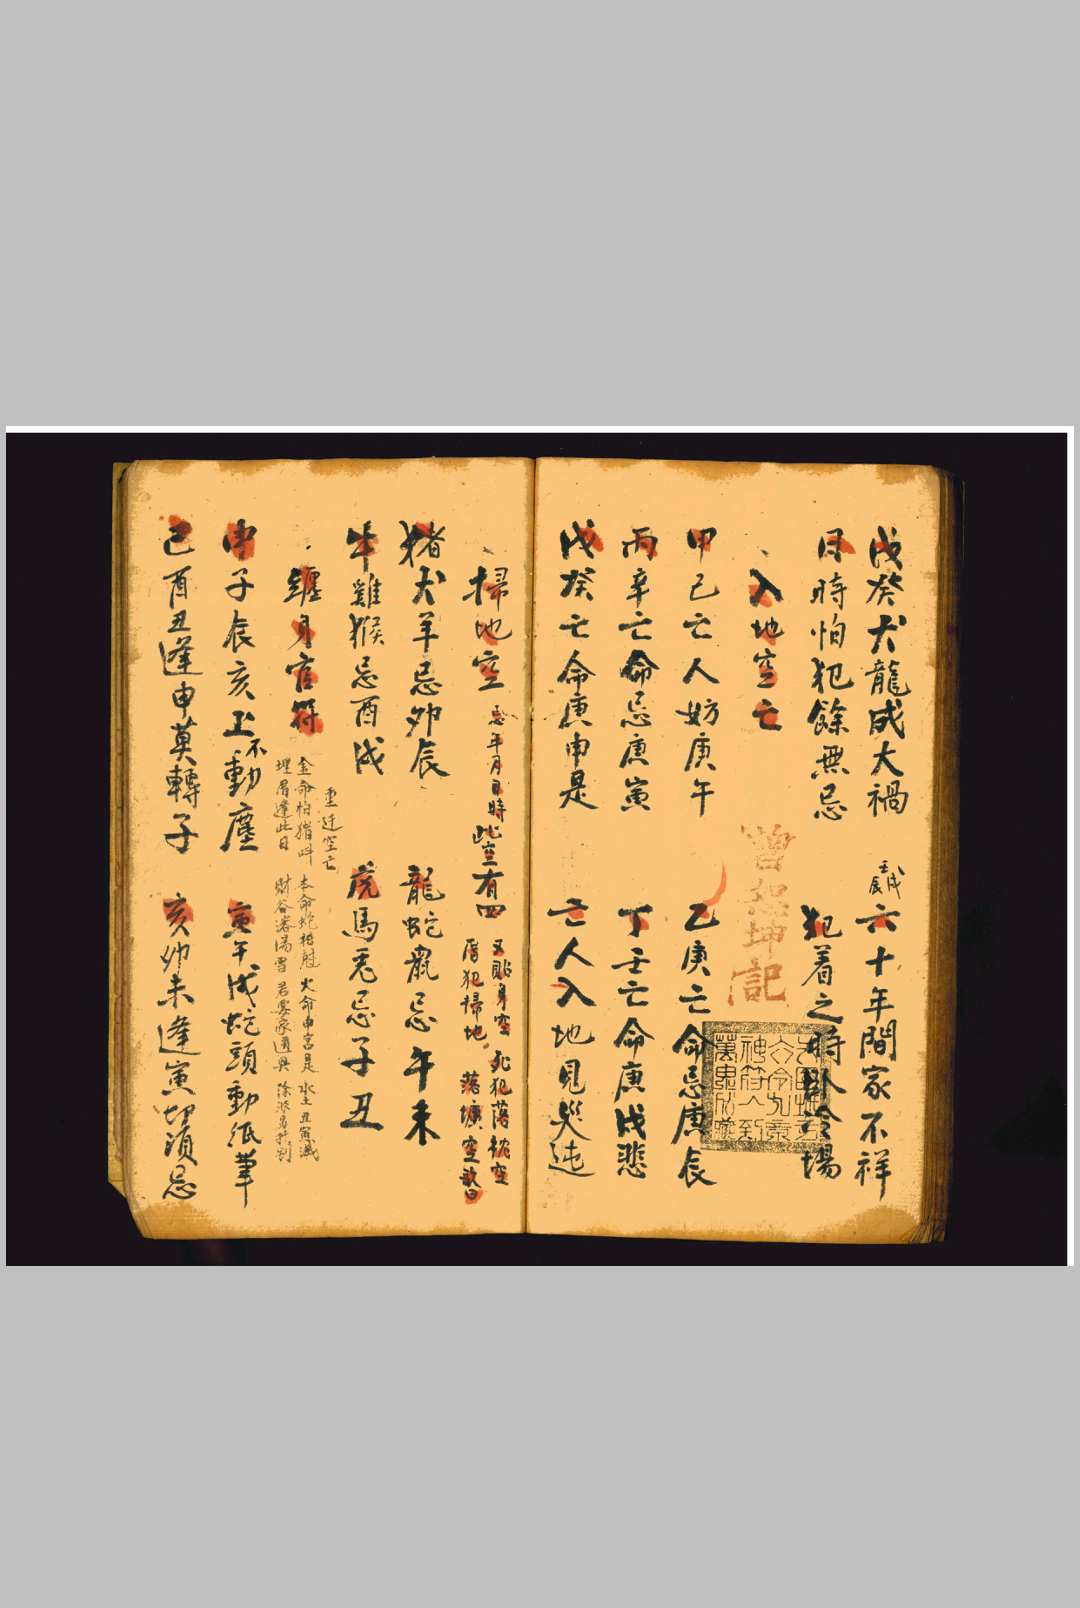 戊癸犬龍成大禍 六十年間家不祥
壬戌
日時怕犯餘無忌 犯着之時臥冷場
入地空亡
曾
坤記
甲己亡人妨庚午 乙庚亡命忌庚辰
丙辛亡命忌庚寅 丁壬亡命庚戌悲
戊癸亡命庚申是 亡人入地見災迍
掃地空
忌年月日時此空有四
又貼身空 犯落枕空
犯掃地 落壙空
猪犬羊忌卯辰 龍蛇鼠忌午未
牛雞猴忌酉戌 虎馬兎忌子丑
重迁空亡
纏身官符
金命怕猪 本命蛇相 火命申宮是 水土丑寅滅
埋眉逢此日 財谷 湯雪 君 家道興
申子辰亥上不動塵 寅午戌蛇頭動紙筆
己酉丑逢申莫轉子 亥卯未逢寅切須忌